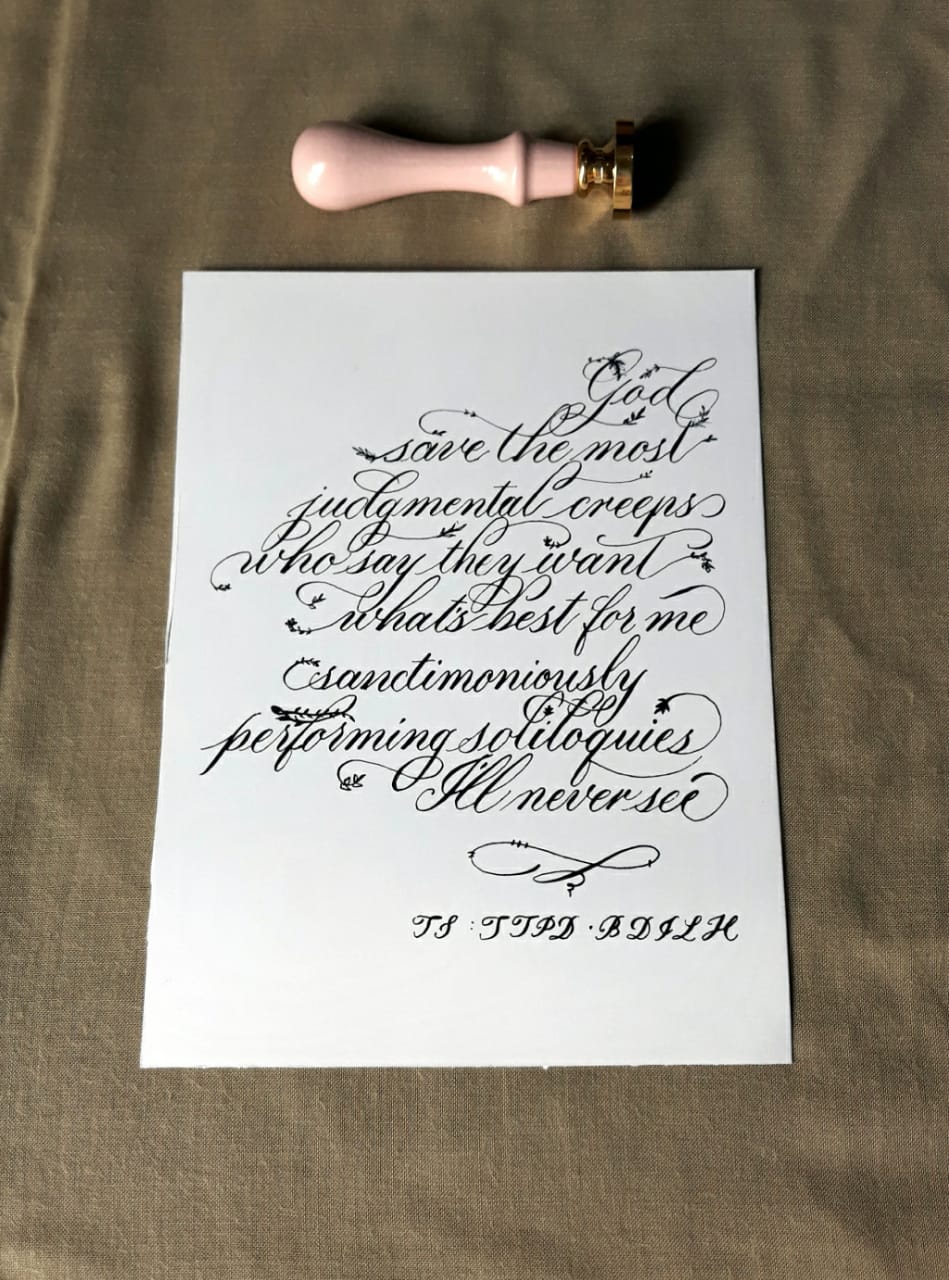 God
save the most
judgmental creeps
who say they want
what's best for me
sanctimoniously
performing soliloquies
I'll never see
TS : TTPD · BDILH